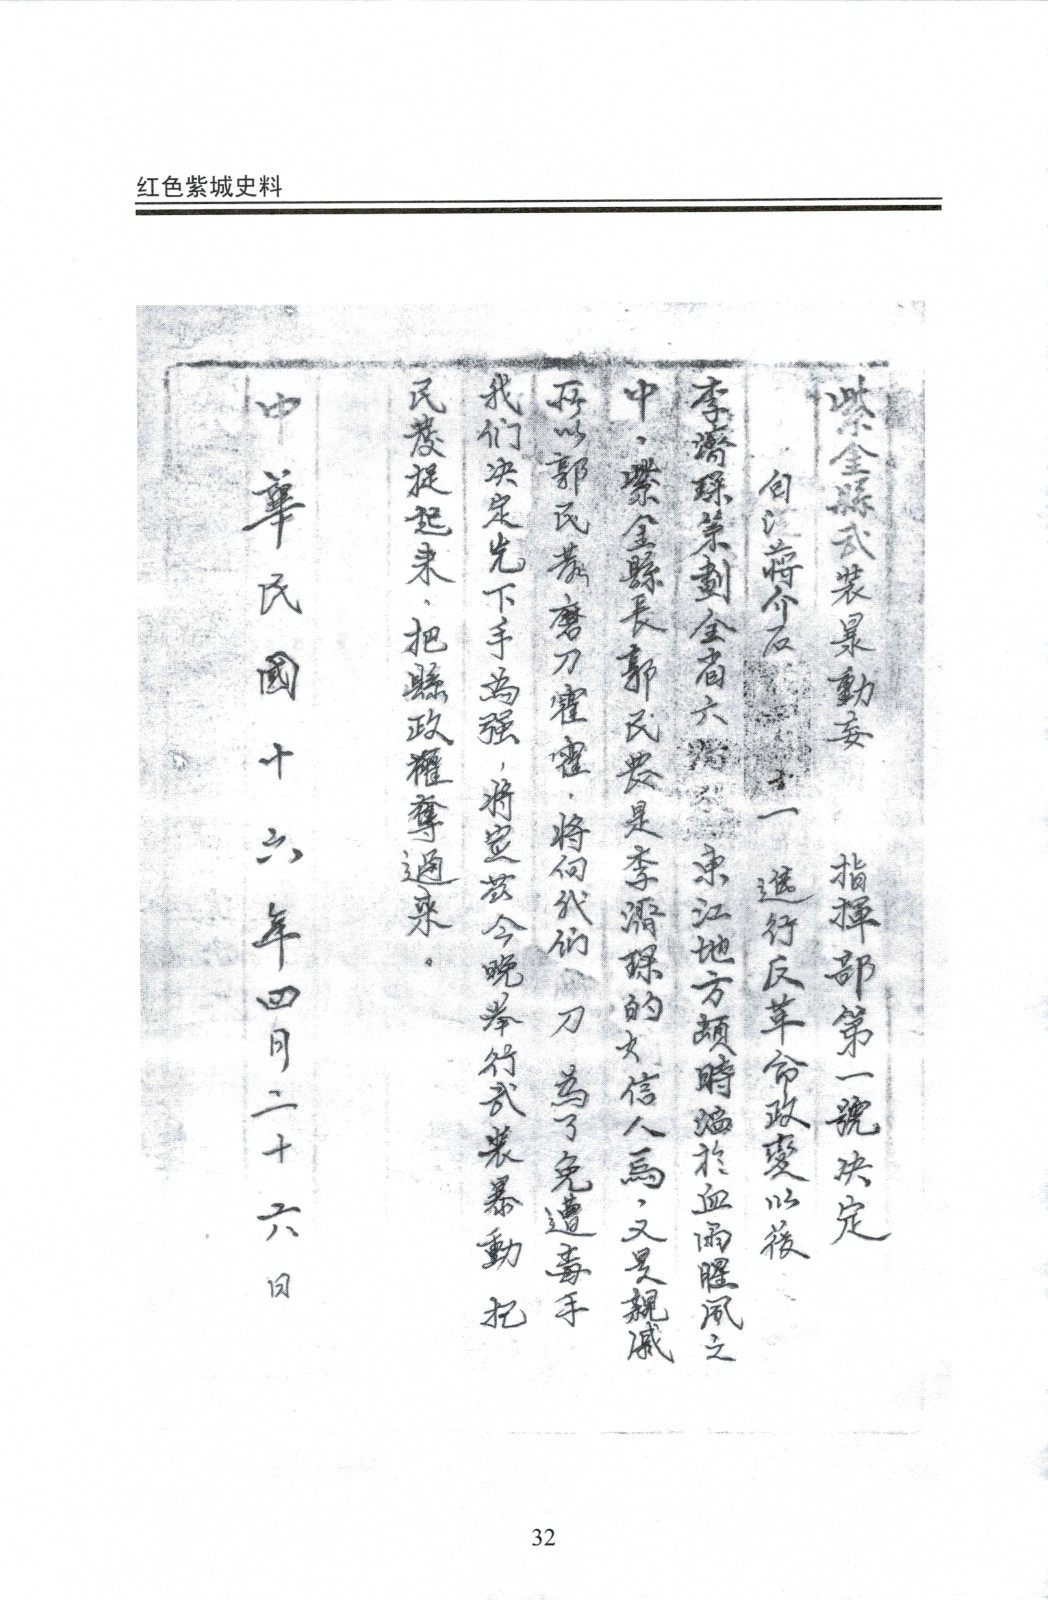 红色紫城史料
紫金縣武裝暴動委 指揮部第一號决定
自 蔣介石 一 進行反革命政變以後
李濟琛策劃全省六 東江地方頓時 於血雨腥風之
中，紫金縣長郭民發是李濟琛的 信人馬，又是親戚
所以郭民發磨刀霍霍，將向我们 刀 為了免遭毒手
我们决定先下手為强，將定 今晚举行武裝暴動 把
民發捉起来，把縣政權奪過来。
中華民國十六年四月二十六日
32